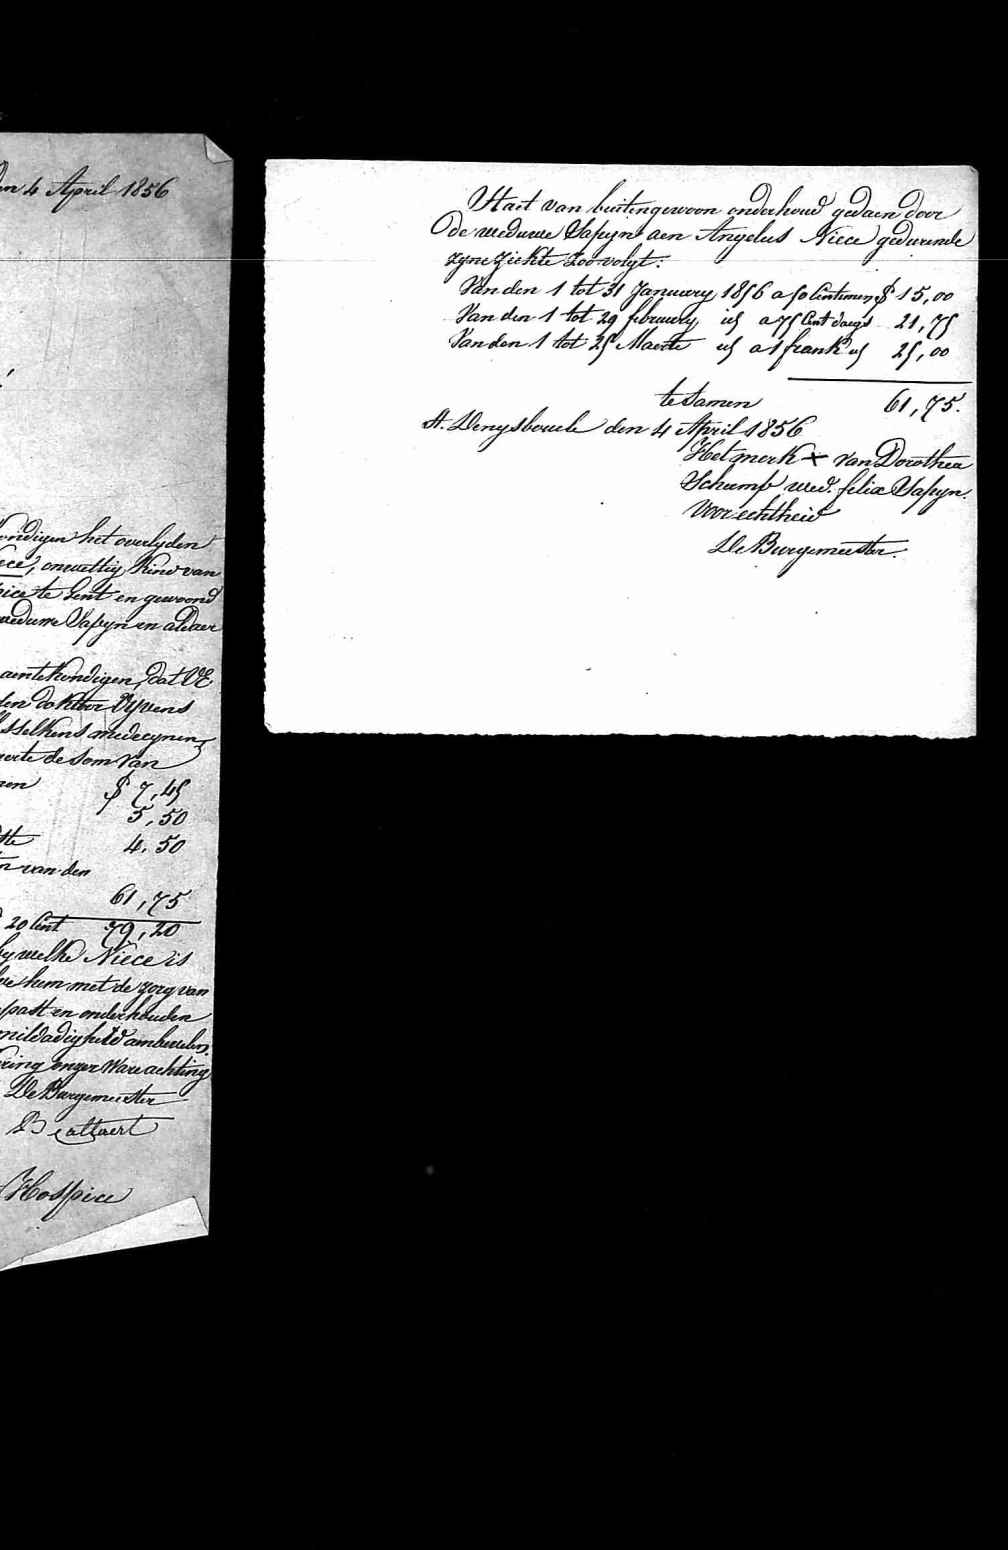 den 4 April 1856
ondigen het overlyden
iece, onwettig Kind van
spice te Gent en gewoond
weduwe Sapyn en aldaer
aentekondigen, dat UE
den doktoor Vyvens
sselkens medecynen
de som van
$ 7,45
5,50
4,50
van den
61,75
20 Cent 79,20
by welke Niece is
hem met de zorg van
past en onderhouden
mildadigheid aenbevelen.
ring onzer Ware achting
De Burgemeester
Hospice
Staet van buitengewoon onderhoud gedaen door
de weduwe Sapyn aen Angelus Niece gedurende
zyne ziekte zoo volgt:
Van den 1 tot 31 January 1856 a 50 Centimen $ 15,00
Van den 1 tot 29 february id a 75 Cent daegs 21,75
Van den 1 tot 25 Maerte id a 1 frank id 25,00
te samen 61,75.
St. Denysboucle den 4 April 1856
Het merk + van Dorothea
Schamp wed. felix Sapyn.
Voor echtheid
De Burgemeester.